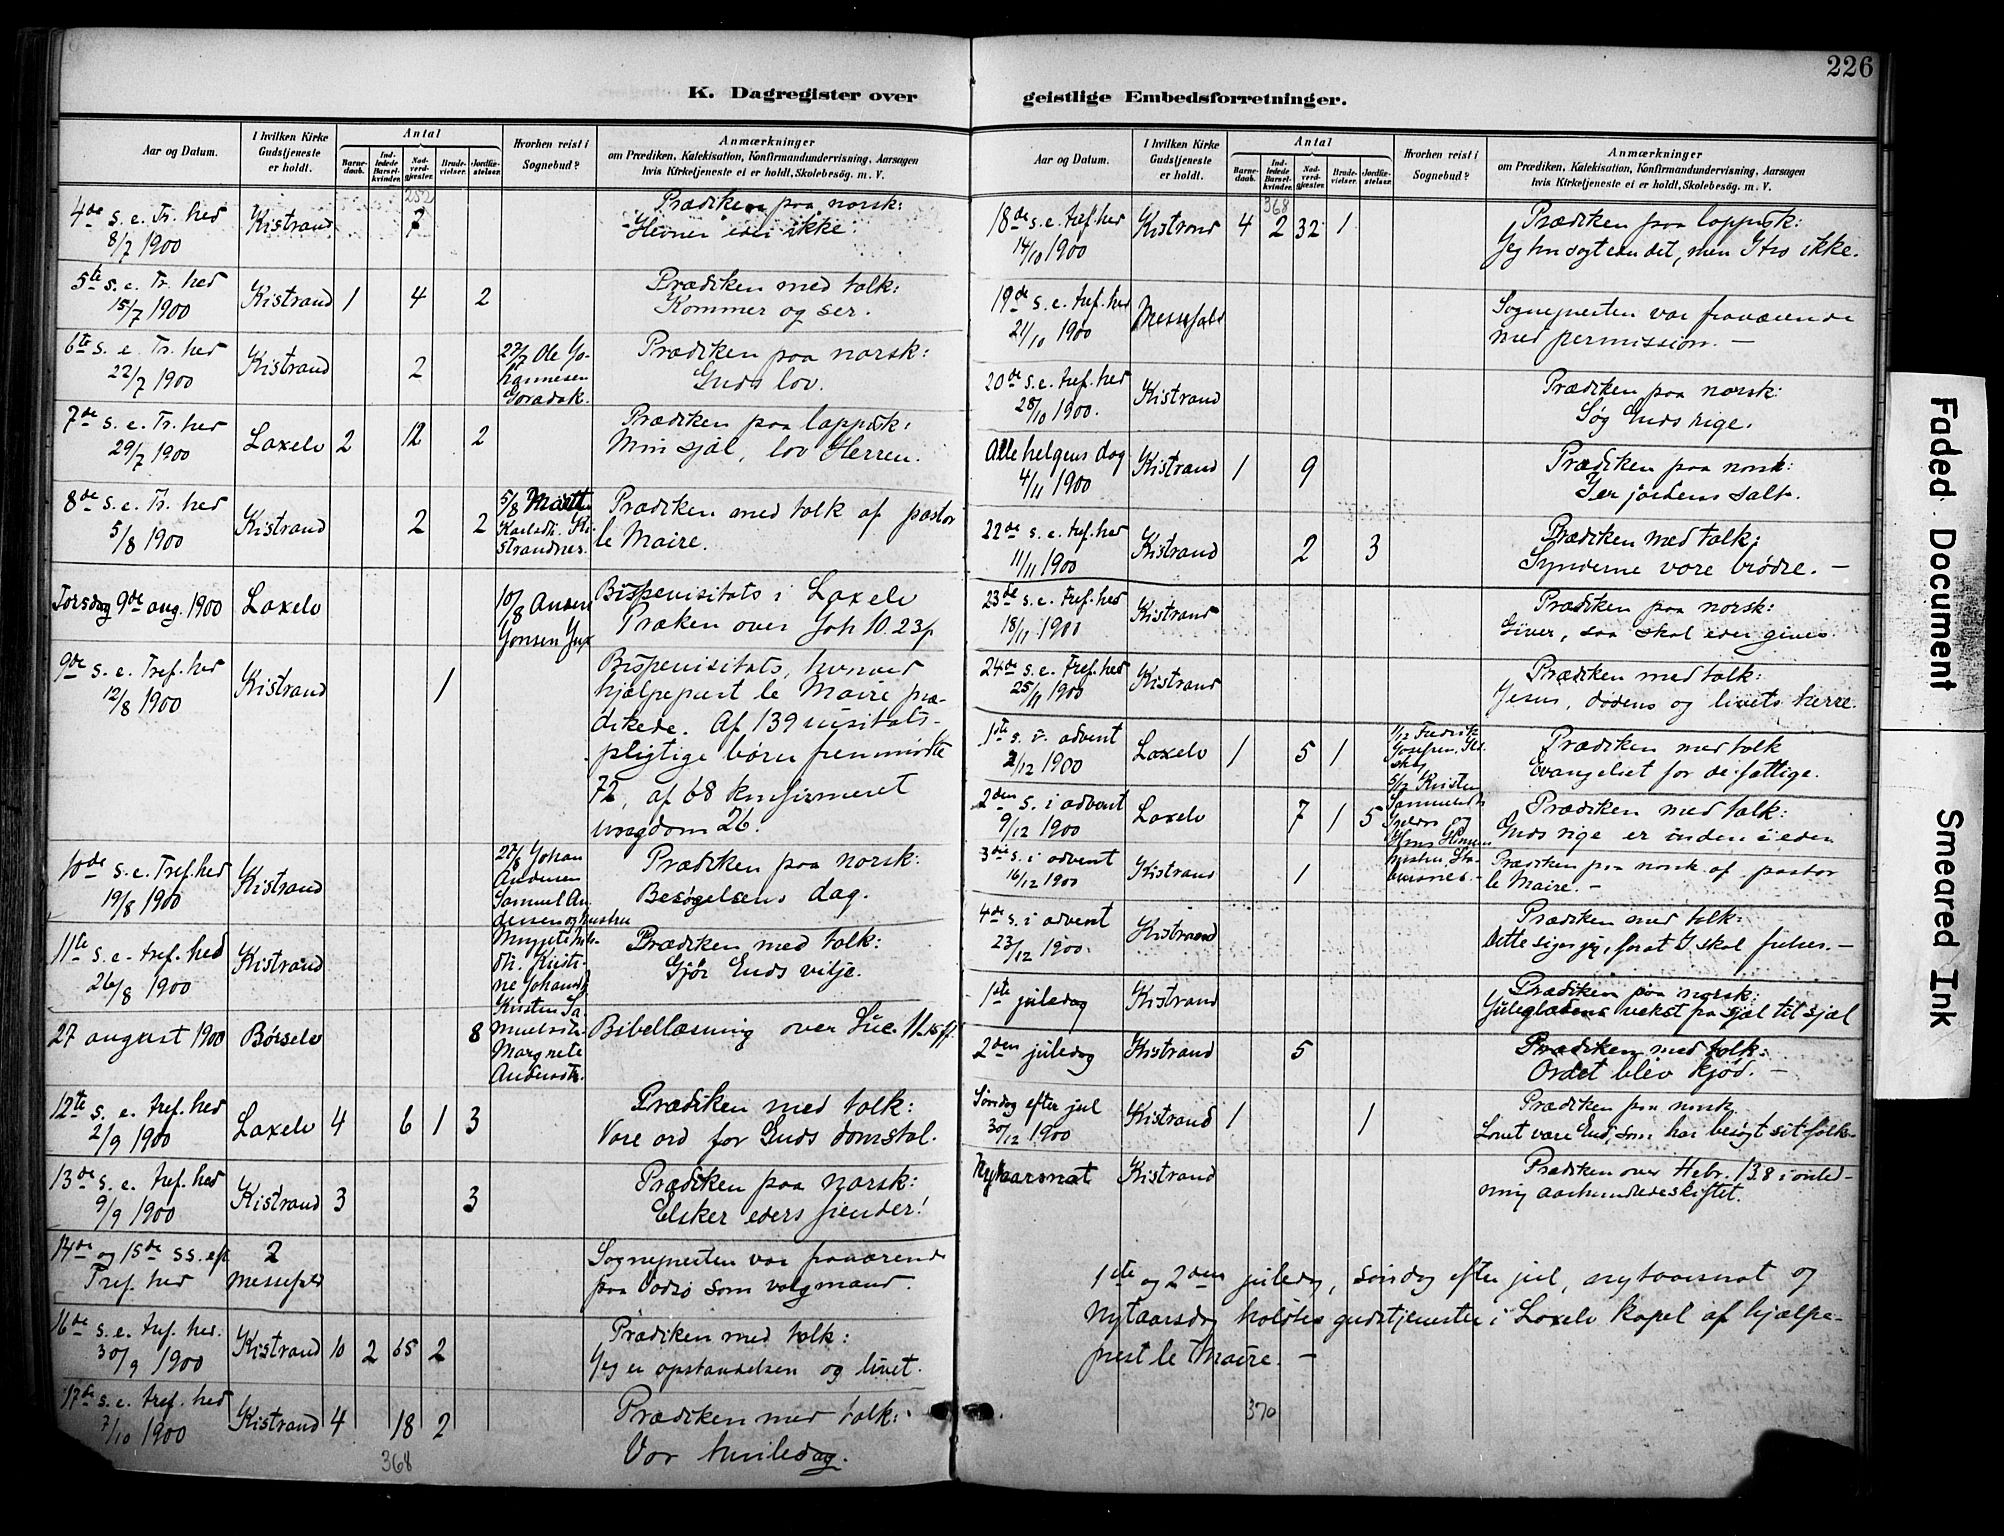 226
K. Dagregister over
geistlige Embedsforretninger.
Aar og Datum.
I hvilken Kirke
Gudstjeneste
er holdt.
Antal
Barne-
daab.
Ind-
ledede
Barsel-
kvinder.
Nad-
verd-
gjester.
Brude-
vielser.
Jordfæ-
stelser.
Hvorhen reist i
Sognebud?
Anmærkninger
om Prædiken, Katekisation, Konfirmandundervisning, Aarsagen
hvis Kirketjeneste ei er holdt, Skolebesøg. m. V.
252
4de s. e. Tr. hed
8/7 1900
Kistrand
7
Prædiken paa norsk:
Hevner eder ikke.
5te s. e. Tr. hed
15/7 1900
Kistrand
1
4
2
Prædiken med tolk:
Kommer og ser.
6te s. e. Tr. hed
22/7 1900
Kistrand
2
27/7 Ole Jo-
hannesen
Prædiken paa norsk:
Guds lov.
7de s. e. Tr. hed
29/7 1900
Laxelv
2
12
2
Prædiken paa lappisk:
Min sjæl, lov Herren.
8de s. e. Tr. hed
5/8 1900
Kistrand
2
2
5/8
Karlsdtr. Ki-
strandnes.
Prædiken med tolk af pastor
le Maire.
Torsdag 9de aug. 1900
Laxelv
10/8
Bispevisitats i Laxelv
Præken over Joh 10. 23 f.
9de s. e. Tref. hed
12/8 1900
Kistrand
1
Bispevisitats, hvorved
hjælpeprest le Maire præ-
dikede. Af 139 visitats-
pligtige børn fremmødte
72, af 68 konfirmeret
ungdom 26.
10de s. e. Tref. hed
19/8 1900
Kistrand
27/8 Johan
Andersen
Samuel An-
dersen og hustru
Prædiken paa norsk:
Besøgelsens dag.
11te s. e. tref. hed
26/8 1900
Kistrand
dtr. Kristi-
ne Johansdtr
Kirsten Sa
muelsdtr.
Margrete
Andersdtr.
Prædiken med tolk:
Gjør Guds vilje.
27 august 1900
Børselv
8
Bibellæsning over Luc 11. 15 ff.
12te s. e. tref. hed
2/9 1900
Laxelv
4
6
1
3
Prædiken med tolk:
Vore ord for Guds domstol.
13de s. e. tref. hed
9/9 1900
Kistrand
3
3
Prædiken paa norsk:
Elsker eders fiender!
14de og 15de ss. eft
Tref. hed
2
messefald
Sognepresten var fraværende
paa Vadsø som valgmand.
16de s. e. tref. hed.
30/9 1900
Kistrand
10
2
65
2
Prædiken med tolk:
Jeg er opstandelsen og livet.
17de s. e. tref. hed
7/10 1900
Kistrand
4
18
2
Prædiken med tolk:
Vor hviledag.
368
Aar og Datum.
I hvilken Kirke
Gudstjeneste
er holdt.
Antal
Barne-
daab.
Ind-
ledede
Barsel-
kvinder.
Nad-
verd-
gjester.
Brude-
vielser.
Jordfæ-
stelser.
Hvorhen reist i
Sognebud?
Anmærkninger
om Prædiken, Katekisation, Konfirmandundervisning, Aarsagen
hvis Kirketjeneste ei er holdt, Skolebesøg. m. V.
368
18de s. e. tref. hed
14/10 1900
Kistrand
4
2
32
1
Prædiken paa lappisk:
Jeg har sagt eder det, men I tro ikke.
19de s. e. tref. hed
21/10 1900
Messefald
Sognepresten var fraværende
med permission. —
20de s. e. tref. hed
28/10 1900.
Kistrand
Prædiken paa norsk:
Søg Guds rige.
Alle helgens dag
4/11 1900
Kistrand
1
9
Prædiken paa norsk:
I er jordens salt.
22de s. e. tref. hed
11/11 1900
Kistrand
2
3
Prædiken med tolk:
Synderne vore brødre. —
23de s. e. Tref. hed
18/11 1900
Kistrand
Prædiken paa norsk:
Giver, saa skal eder gives.
24de s. e. Tref. hed
25/11 1900
Kistrand
Prædiken med tolk:
Jesus, dødens og livets herre.
1ste s. i. advent
2/12 1900
Laxelv
1
5
1
1/12 Fredrik
Josefsen.
Prædiken med tolk
Evangeliet for de fattige.
2den s. i advent
9/12 1900
Laxelv
7
1
5
5/12 Kirsten
Samuelsdtr
Prædiken med tolk:
Guds rige er inden i eder
3die s. i advent
16/12 1900
Kistrand
1
Prædiken paa norsk af pastor
le Maire. —
4de s. i advent
23/12 1900.
Kistrand
Prædiken med tolk:
Dette siger jeg, forat I skal frelses. —
1ste juledag
Kistrand
Prædiken paa norsk:
Juleglædens vekst fra sjæl til sjæl
2den juledag
Kistrand
5
Prædiken med tolk:
Ordet blev kjød. —
Søndag efter jul
30/12 1900
Kistrand
1
1
Prædiken paa norsk
Lovet være Gud, som har besøgt sit folk.
Nytaarsnat
Kistrand
Prædiken over Hebr. 13 8 i anled-
ning aarhundredeskiftet.
1ste og 2den juledag, søndag efter jul, nytaarsnat og
Nytaarsdag holdtes gudstjenester i Laxelv kapel af hjælpe-
prest le Maire. —
370
Faded Document
Smeared Ink